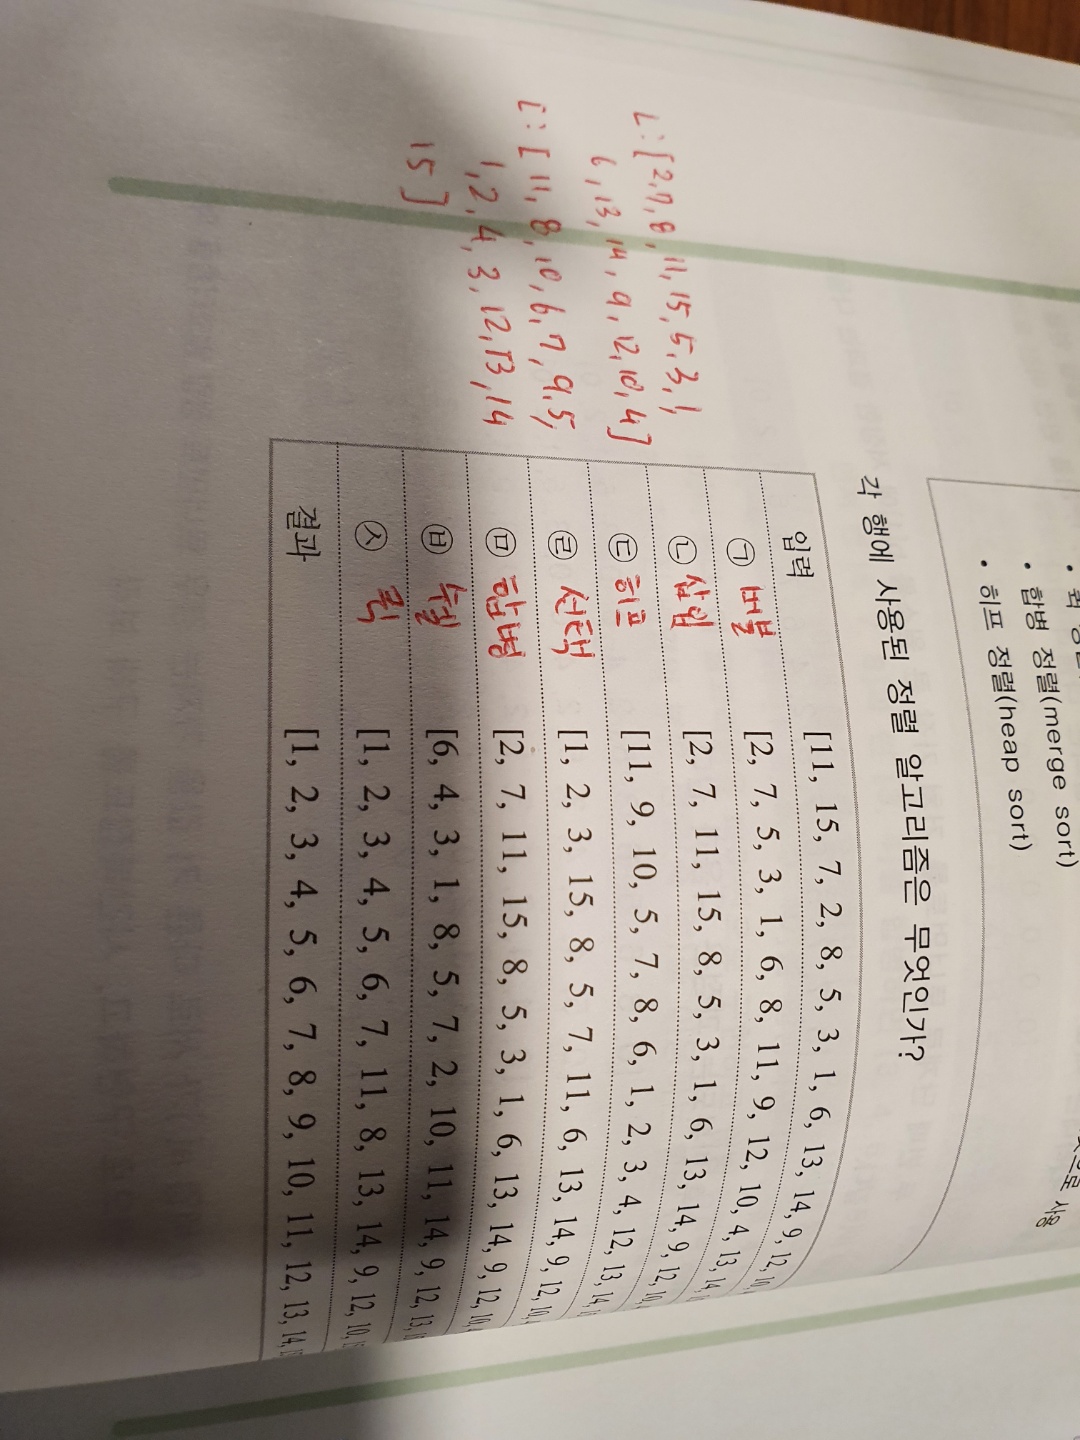 • 합병 정렬(merge sort)
• 히프 정렬(heap sort)
각 행에 사용된 정렬 알고리즘은 무엇인가?
입력 [11, 15, 7, 2, 8, 5, 3, 1, 6, 13, 14, 9, 12, 10,
㉠ 버블 [2, 7, 5, 3, 1, 6, 8, 11, 9, 12, 10, 4, 13, 14,
㉡ 삽입 [2, 7, 11, 15, 8, 5, 3, 1, 6, 13, 14, 9, 12, 10,
㉢ 히프 [11, 9, 10, 5, 7, 8, 6, 1, 2, 3, 4, 12, 13, 14,
㉣ 선택 [1, 2, 3, 15, 8, 5, 7, 11, 6, 13, 14, 9, 12, 10,
㉤ 합병 [2, 7, 11, 15, 8, 5, 3, 1, 6, 13, 14, 9, 12, 10,
㉥ 쉘 [6, 4, 3, 1, 8, 5, 7, 2, 10, 11, 14, 9, 12, 13,
㉦ 퀵 [1, 2, 3, 4, 5, 6, 7, 11, 8, 13, 14, 9, 12, 10,
결과 [1, 2, 3, 4, 5, 6, 7, 8, 9, 10, 11, 12, 13, 14,
ㄴ: [2, 7, 8, 11, 15, 5, 3, 1,
6, 13, 14, 9, 12, 10, 4]
ㄷ: [11, 8, 10, 6, 7, 9, 5,
1, 2, 4, 3, 12, 13, 14
15]